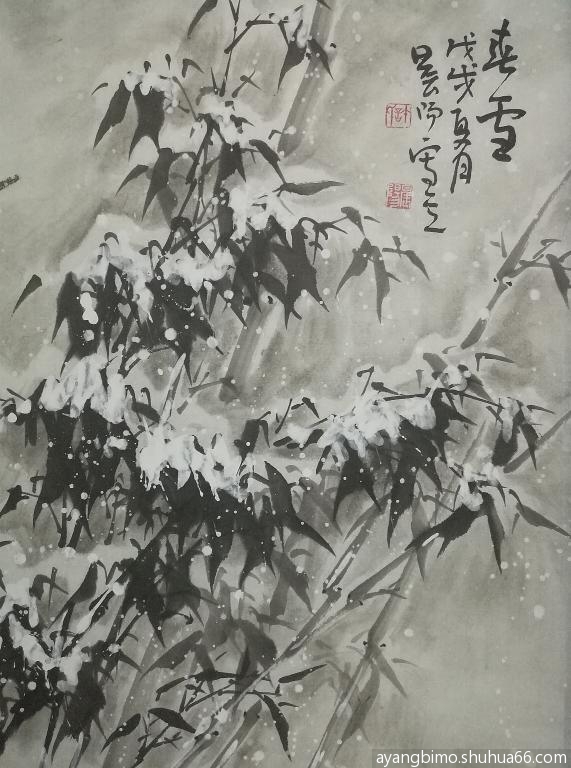 春雪
戊戌夏月
晨阳写之
ayangbimo.shuhua66.com